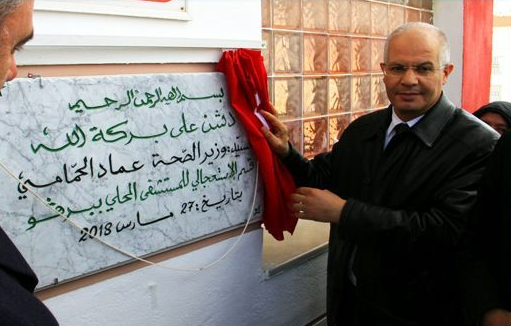 بسم الله الرحمن الرحيم
دشن على بركة الله
السيد: وزير الصحة عماد الحمامي
قسم الإستعجالي للمستشفى المحلي ببرقو
بتاريخ: 27 مارس 2018